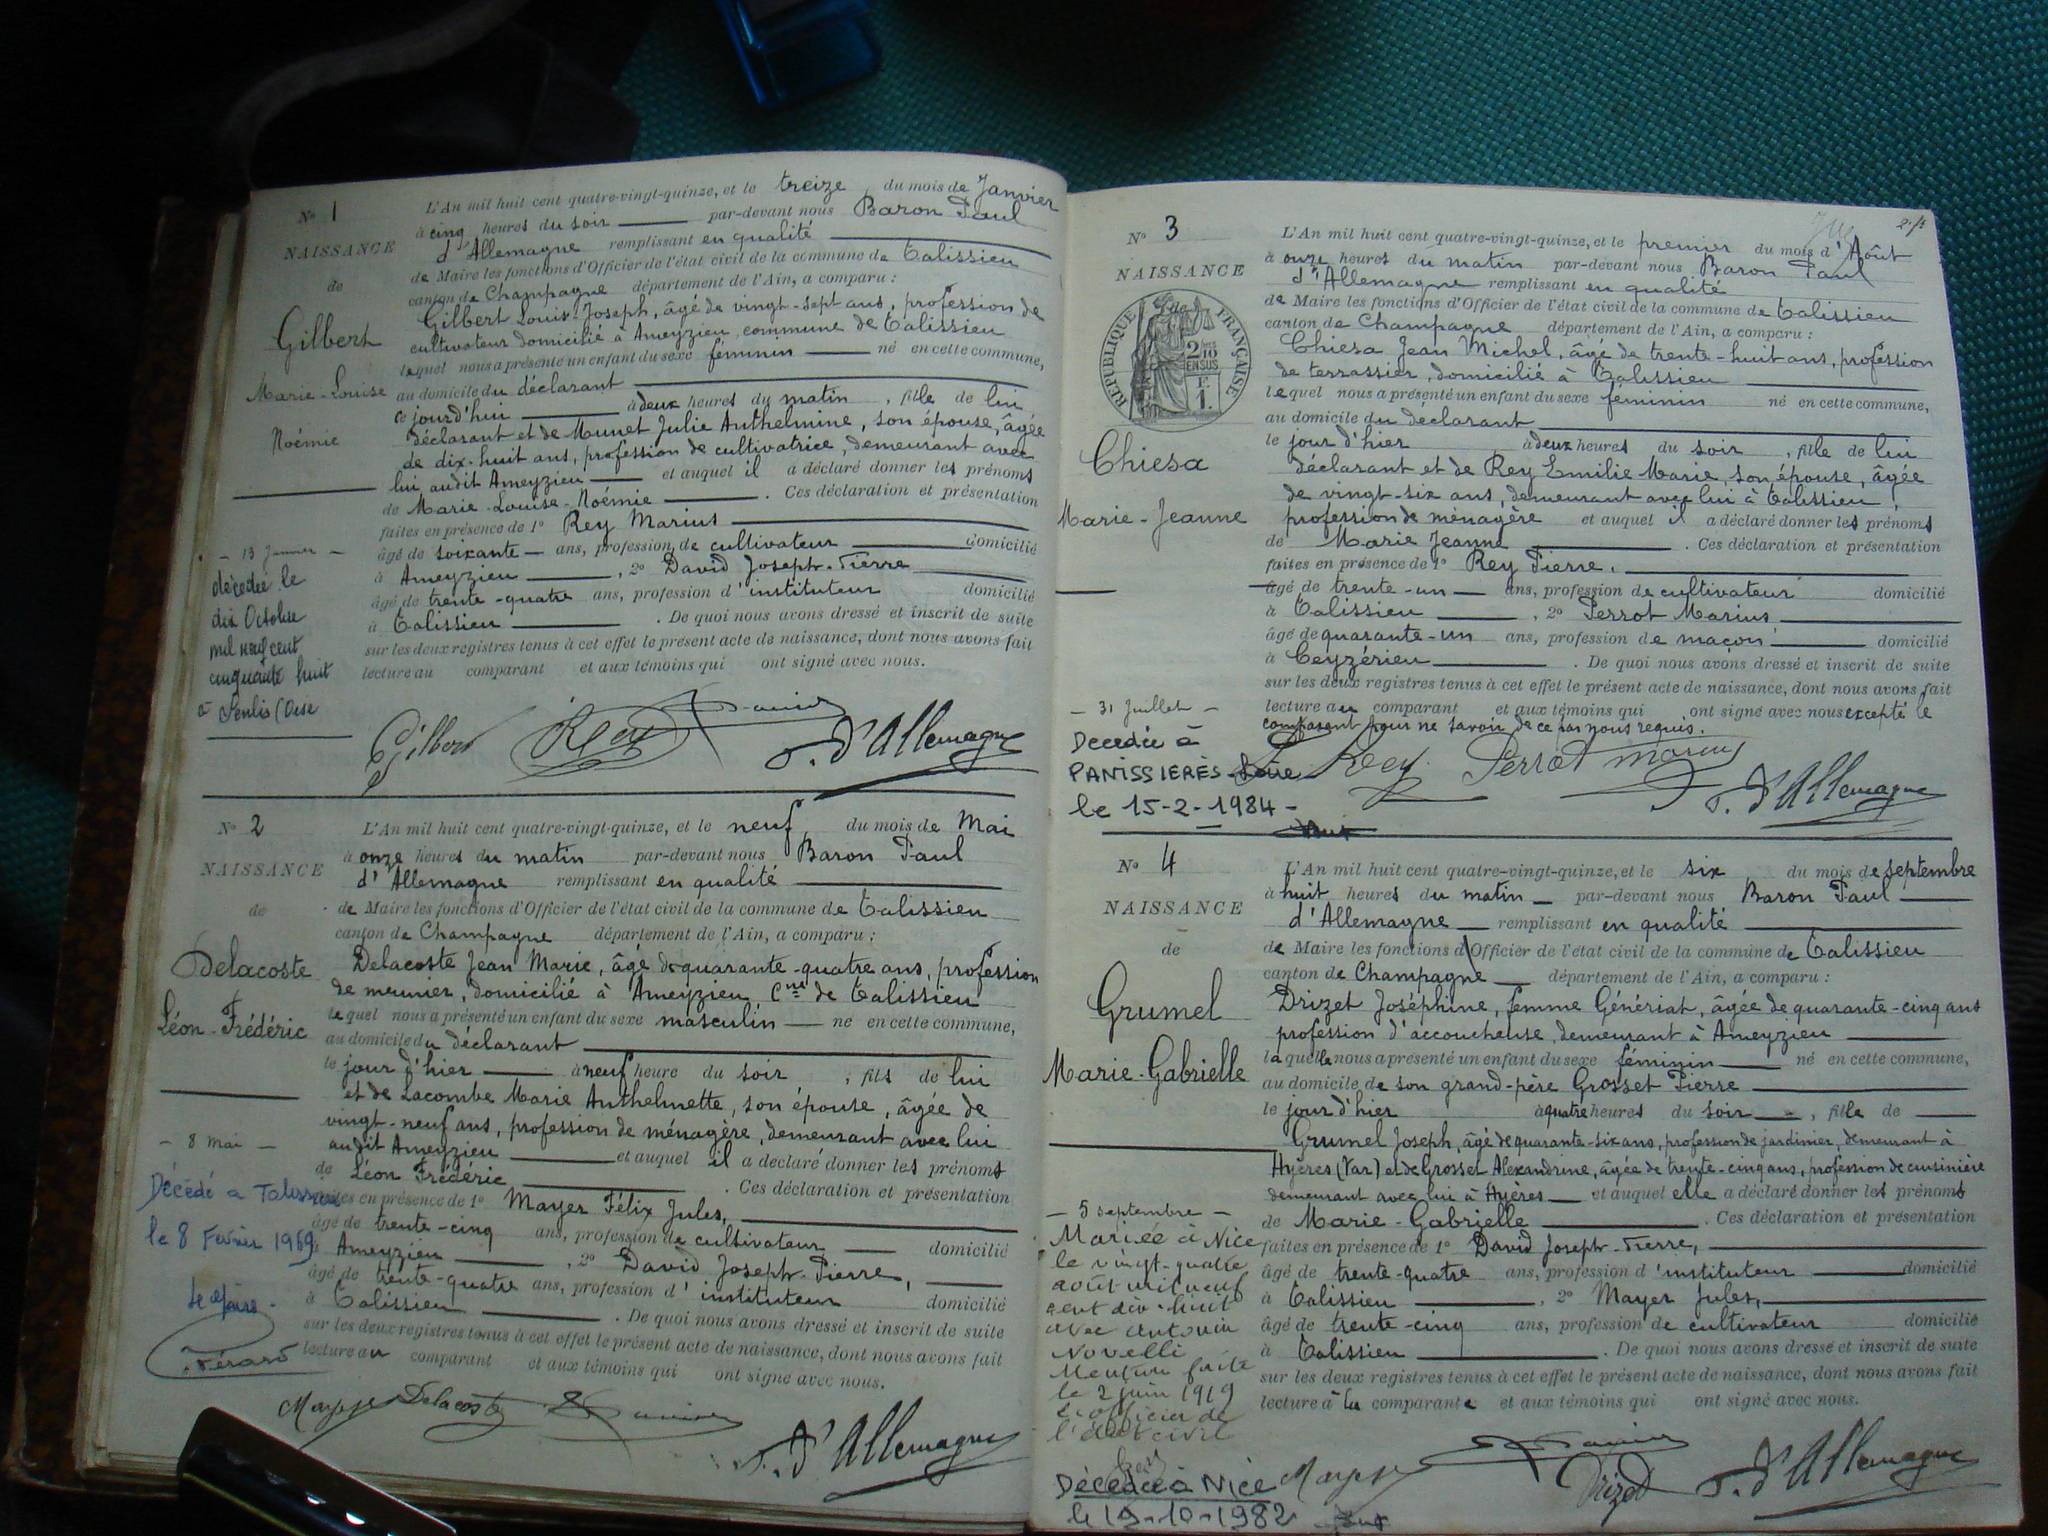 N° 1
NAISSANCE
de
Gilbert
Marie-Louise
Noémie
- 13 Janvier -
décédée le
dix Octobre
mil neuf cent
cinquante huit
à Senlis (Oise
L'An mil huit cent quatre-vingt-quinze, et le treize du mois de Janvier
à cinq heures du soir par-devant nous Baron Paul
d'Allemagne remplissant en qualité
de Maire les fonctions d'Officier de l'état civil de la commune de Talissieu
canton de Champagne département de l'Ain, a comparu :
Gilbert Louis-Joseph, âgé de vingt-sept ans, profession de
cultivateur domicilié à Ameyzieu, commune de Talissieu
lequel nous a présenté un enfant du sexe féminin né en cette commune,
au domicile du déclarant
ce jourd'hui à deux heures du matin, fille de lui
déclarant et de Munet Julie Anthelmine, son épouse, âgée
de dix-huit ans, profession de cultivatrice, demeurant avec
lui audit Ameyzieu et auquel il a déclaré donner les prénoms
de Marie-Louise-Noémie. Ces déclaration et présentation
faites en présence de 1° Rey Marius
âgé de soixante ans, profession de cultivateur domicilié
à Ameyzieu, 2° David Joseph-Pierre
âgé de trente-quatre ans, profession d'instituteur domicilié
à Talissieu. De quoi nous avons dressé et inscrit de suite
sur les deux registres tenus à cet effet le présent acte de naissance, dont nous avons fait
lecture au comparant et aux témoins qui ont signé avec nous.
Gilbert Rey David P. d'Allemagne
N° 2
NAISSANCE
de
Delacoste
Léon-Frédéric
- 8 Mai -
Décédé à Talissieu
le 8 Février 1969
Le Maire
Férard
L'An mil huit cent quatre-vingt-quinze, et le neuf du mois de Mai
à onze heures du matin par-devant nous Baron Paul
d'Allemagne remplissant en qualité
de Maire les fonctions d'Officier de l'état civil de la commune de Talissieu
canton de Champagne département de l'Ain, a comparu :
Delacoste Jean Marie, âgé de quarante-quatre ans, profession
de meunier, domicilié à Ameyzieu, Cne de Talissieu
lequel nous a présenté un enfant du sexe masculin né en cette commune,
au domicile du déclarant
le jour d'hier à neuf heure du soir, fils de lui
et de Lacombe Marie Anthelmette, son épouse, âgée de
vingt-neuf ans, profession de ménagère, demeurant avec lui
audit Ameyzieu et auquel il a déclaré donner les prénoms
de Léon Frédéric. Ces déclaration et présentation
faites en présence de 1° Mayer Félix Jules,
âgé de trente-cinq ans, profession de cultivateur domicilié
à Ameyzieu, 2° David Joseph-Pierre,
âgé de trente-quatre ans, profession d'instituteur domicilié
à Talissieu. De quoi nous avons dressé et inscrit de suite
sur les deux registres tenus à cet effet le présent acte de naissance, dont nous avons fait
lecture au comparant et aux témoins qui ont signé avec nous.
Delacoste David P. d'Allemagne
N° 3
NAISSANCE
RÉPUBLIQUE FRANÇAISE
2/10
EN SUS
F.
1.
Chiesa
Marie-Jeanne
- 31 Juillet -
Décédée à
PANISSIERES-Loire
le 15-2-1984-
L'An mil huit cent quatre-vingt-quinze, et le premier du mois d'Août
à onze heures du matin par-devant nous Baron Paul
d'Allemagne remplissant en qualité
de Maire les fonctions d'Officier de l'état civil de la commune de Talissieu
canton de Champagne département de l'Ain, a comparu :
Chiesa Jean Michel, âgé de trente-huit ans, profession
de terrassier, domicilié à Talissieu
lequel nous a présenté un enfant du sexe féminin né en cette commune,
au domicile du déclarant
le jour d'hier à deux heures du soir, fille de lui
déclarant et de Rey Emilie Marie, son épouse, âgée
de vingt-six ans, demeurant avec lui à Talissieu,
profession de ménagère et auquel il a déclaré donner les prénoms
de Marie Jeanne. Ces déclaration et présentation
faites en présence de 1° Rey Pierre,
âgé de trente-un ans, profession de cultivateur domicilié
à Talissieu, 2° Perrot Marius
âgé de quarante-un ans, profession de maçon domicilié
à Ceyzérieu. De quoi nous avons dressé et inscrit de suite
sur les deux registres tenus à cet effet le présent acte de naissance, dont nous avons fait
lecture au comparant et aux témoins qui ont signé avec nous excepté le
comparant pour ne savoir de ce par nous requis.
Rey Perrot marius P. d'Allemagne
N° 4
NAISSANCE
de
Grumel
Marie-Gabrielle
- 5 septembre -
Mariée à Nice
le vingt-quatre
août mil neuf
cent dix-huit
avec Antonin
Novelli
Mention faite
le 2 juin 1919
L'officier de
l'état civil
Décédée à Nice
le 12-10-1982
L'An mil huit cent quatre-vingt-quinze, et le six du mois de septembre
à huit heures du matin par-devant nous Baron Paul
d'Allemagne remplissant en qualité
de Maire les fonctions d'Officier de l'état civil de la commune de Talissieu
canton de Champagne département de l'Ain, a comparu :
Drizet Joséphine, femme Génériat, âgée de quarante-cinq ans
profession d'accoucheuse, demeurant à Ameyzieu
laquelle nous a présenté un enfant du sexe féminin né en cette commune,
au domicile de son grand-père Grosset Pierre
le jour d'hier à quatre heures du soir, fille de
Grumel Joseph, âgé de quarante-six ans, profession de jardinier, demeurant à
Hyères (Var) et de Grosset Alexandrine, âgée de trente-cinq ans, profession de cuisinière
demeurant avec lui à Hyères et auquel elle a déclaré donner les prénoms
de Marie-Gabrielle. Ces déclaration et présentation
faites en présence de 1° David Joseph-Pierre,
âgé de trente-quatre ans, profession d'instituteur domicilié
à Talissieu, 2° Mayer Jules,
âgé de trente-cinq ans, profession de cultivateur domicilié
à Talissieu. De quoi nous avons dressé et inscrit de suite
sur les deux registres tenus à cet effet le présent acte de naissance, dont nous avons fait
lecture à la comparante et aux témoins qui ont signé avec nous.
David Drizet P. d'Allemagne